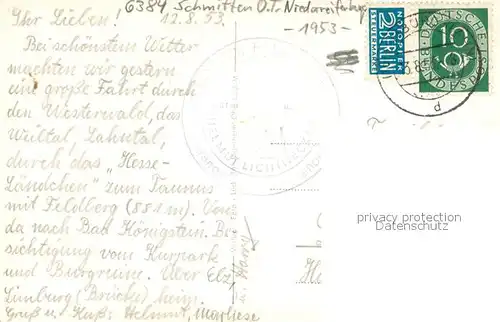 6384 Schmitten O.T. Niederreifenberg
-1953-
Ihr Lieben! 12.8.53.
Bei schönstem Wetter
machten wir gestern
eine große Fahrt durch
den Westerwald, das
Weiltal, Lahntal,
durch das "Hesse-
Ländchen" zum Taunus
mit Feldberg (881 m). Von
da nach Bad Königstein. Be
sichtigung vom Kurpark
und Burgruine. Über Elz,
Limburg (Brücke) heim.
Gruß u. Kuß: Helmut, Marliese
u. Harry
NOTOPFER
2 BERLIN
STEUERMARKE
DEUTSCHE
10
BUNDESPOST
d
privacy protection
Datenschutz